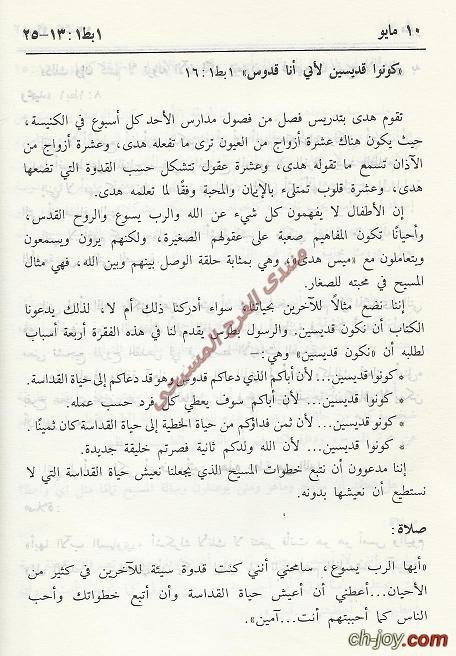 ١٠ مايو ١بط١ : ١٣-٢٥
«كونوا قديسين لأني أنا قدوس» ١بط١ : ١٦
تقوم هدى بتدريس فصل من فصول مدارس الأحد كل أسبوع في الكنيسة،
حيث يكون هناك عشرة أزواج من العيون ترى ما تفعله هدى، وعشرة أزواج من
الآذان تسمع ما تقوله هدى، وعشرة عقول تتشكل حسب القدوة التي تضعها
هدى، وعشرة قلوب تمتلىء بالإيمان والمحبة وفقًا لما تعلمه هدى.
إن الأطفال لا يفهمون كل شيء عن الله والرب يسوع والروح القدس،
وأحيانًا تكون المفاهيم صعبة على عقولهم الصغيرة، ولكنهم يرون ويسمعون
ويتعاملون مع «ميس هدى»، وهي بمثابة حلقة الوصل بينهم وبين الله، فهي مثال
المسيح في محبته للصغار.
إننا نضع مثالاً للآخرين بحياتنا، سواء أدركنا ذلك أم لا، لذلك يدعونا
الكتاب أن نكون قديسين. والرسول بطرس يقدم لنا في هذه الفقرة أربعة أسباب
لطلبه أن «نكون قديسين» وهي:ـ
* كونوا قديسين... لأن أباكم الذي دعاكم قدوس وهو قد دعاكم إلى حياة القداسة.
* كونوا قديسين... لأن أباكم سوف يعطي كل فرد حسب عمله.
* كونو قديسين... لأن ثمن فداؤكم من حياة الخطية إلى حياة القداسة كان ثمينًا.
* كونوا قديسين... لأن الله ولدكم ثانية فصرتم خليقة جديدة.
إننا مدعوون أن نتبع خطوات المسيح الذي يجعلنا نعيش حياة القداسة التي لا
نستطيع أن نعيشها بدونه.
صلاة:
«أيها الرب يسوع، سامحني أنني كنت قدوة سيئة للآخرين في كثير من
الأحيان...أعطني أن أعيش حياة القداسة وأن أتبع خطواتك وأحب
الناس كما أحببتهم أنت...آمين».
منتدى الفرح المسيحى
ch-joy.com